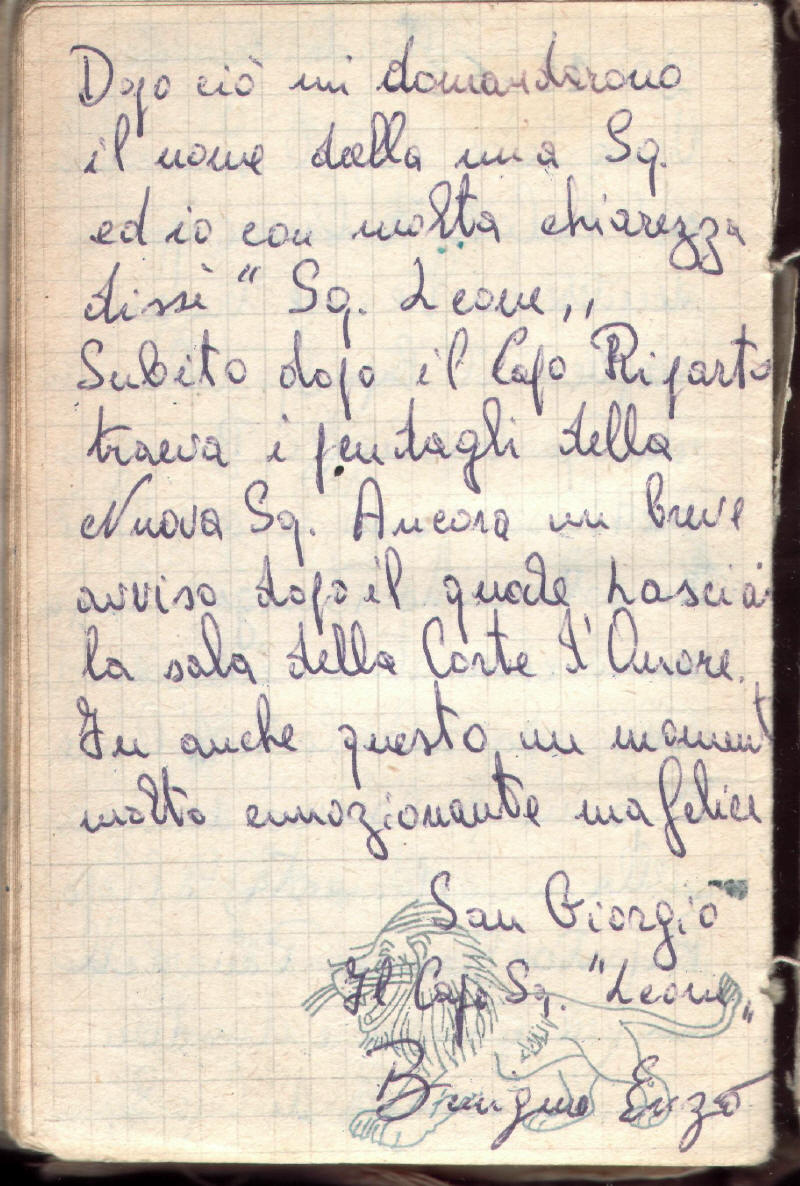 Dopo ciò mi domandarono
il nome della mia Sq.
ed io con molta chiarezza
dissi “ Sq. Leone „
Subito dopo il Capo Riparto
traeva i pentagli della
Nuova Sq. Ancora un breve
avviso dopo il quale lasciai
la sala della Corte d'Onore.
Fu anche questo un moment
molto emozionante ma felice
San Giorgio
Il Capo Sq. “Leone„
Enzo